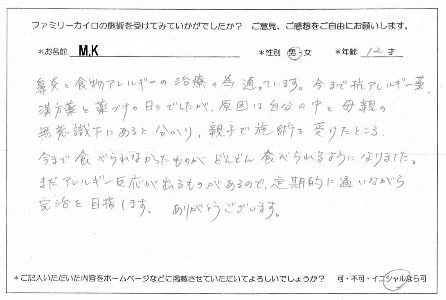 ファミリーカイロの施術を受けてみていかがでしたか? ご意見、ご感想をご自由にお願いします。
*お名前 M.K *性別 男・女 *年齢 12才
鼻炎と食物アレルギーの治療の為通っています。今まで抗アレルギー薬、
漢方薬と薬づけの日々でしたが、原因は自分の中と母親の
無意識下にあると分かり、親子で施術を受けたところ、
今まで食べられなかったものがどんどん食べられるようになりました。
まだアレルギー反応が出るものがあるので、定期的に通いながら
完治を目指します。 ありがとうございます。
*ご記入いただいた内容をホームページなどに掲載させていただいてよろしいでしょうか? 可・不可・イニシャルなら可